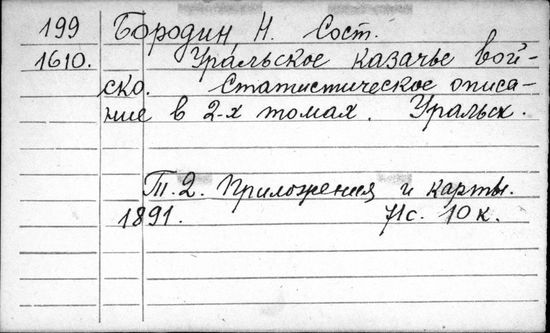 199 Бородин, Н. Сост.
1610. Уральское казачье вой-
ско. Статистическое описа-
ние в 2-х томах. Уральск.
Т.2. Приложения и карты.
1891. 71с. 10 к.